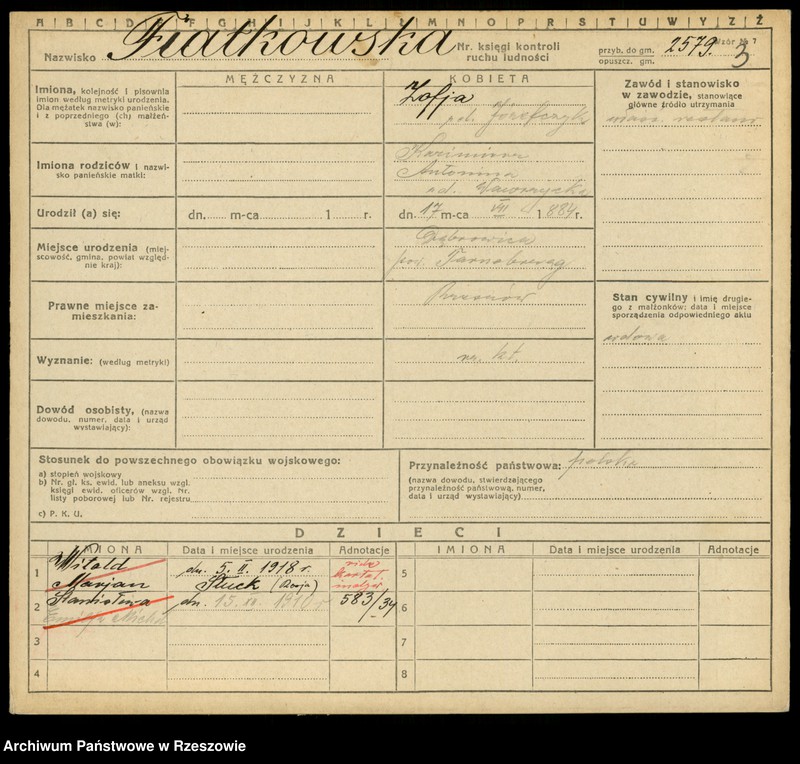 A B C D E F G H I J K L Ł M N O P R S T U W Y Z Ż
Nazwisko Fiałkowska Nr. księgi kontroli ruchu ludności przyb. do gm. opuszcz. gm. 2579. Wzór № 7
3
MĘŻCZYZNA KOBIETA
Imiona, kolejność i pisownia
imion według metryki urodzenia.
Dla mężatek nazwisko panieńskie
i z poprzedniego (ch) małżeń-
stwa (w):
Zofja
Zawód i stanowisko
w zawodzie, stanowiące
główne źródło utrzymania
Imiona rodziców i nazwi-
sko panieńskie matki:
Kazimierz
Antonina
Urodził (a) się: dn. m-ca 1 r. dn. 17 m-ca VII 1884 r.
Miejsce urodzenia (miej-
scowość, gmina, powiat względ-
nie kraj):
Dąbrowica
pow. Tarnobrzeg
Prawne miejsce za-
mieszkania:
Rzeszów
Stan cywilny i imię drugie-
go z małżonków; data i miejsce
sporządzenia odpowiedniego aktu
wdowa
Wyznanie: (według metryki) rz. kt.
Dowód osobisty, (nazwa
dowodu, numer, data i urząd
wystawiający):
Stosunek do powszechnego obowiązku wojskowego:
a) stopień wojskowy
b) Nr. gł. ks. ewid. lub aneksu wzgl.
księgi ewid. oficerów wzgl. Nr.
listy poborowej lub Nr. rejestru
c) P. K. U.
Przynależność państwowa: polska
(nazwa dowodu, stwierdzającego
przynależność państwową, numer,
data i urząd wystawiający)
DZIECI
IMIONA Data i miejsce urodzenia Adnotacje IMIONA Data i miejsce urodzenia Adnotacje
1 Witold dn. 5. II. 1918 r. 5
Marjan Słuck (Rosja)
2 Stanisława dn. 15. 1910 r 583/34 6
3 7
4 8
Archiwum Państwowe w Rzeszowie